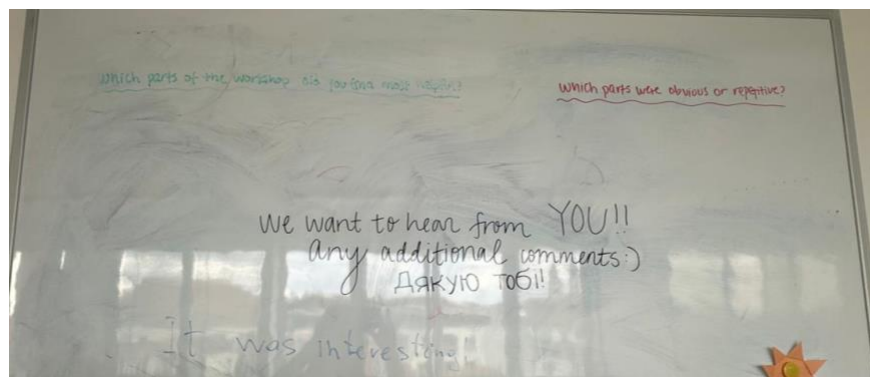 Which parts of the worsshop did you find most helpful?
Which parts were obvious or repetitive?
We want to hear from YOU!!
Any additional comments:)
Дякую тобі!
It was interesting!